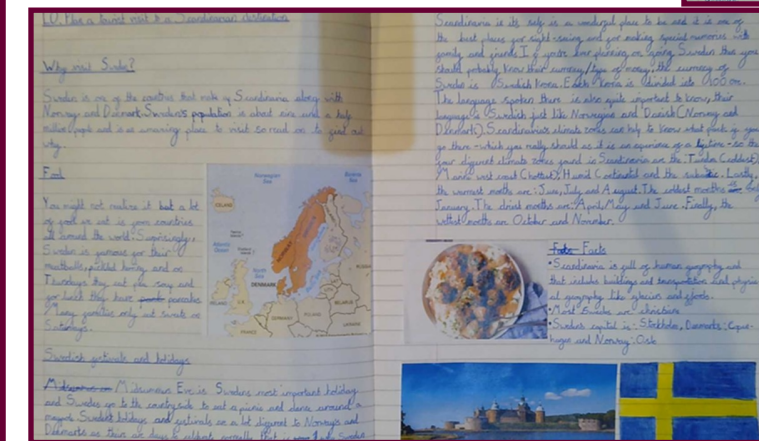 L.O. Plan a tourist visit to a Scandinavian destination
Why visit Sweden?
Sweden is one of the countries that make up Scandinavia along with
Norway and Denmark. Sweden's population is about and a half
million people and is an amazing place to visit so read on to find out
why.
Food
You might not realise it but a lot
of food we eat is from countries
all around the world. Surprisingly,
Sweden is famous for their
meatballs, pickled herring and on
Thursdays they eat pea soup and
for lunch they have pancakes
Many families only eat sweets on
Saturdays.
Swedish festivals and holidays
Midsummer Eve is Swedens most important holiday
and Swedes go to the countryside to eat a picnic and dance around a
maypole. Swedish holidays and festivals are a lot different to Norways and
Denmarks as their
Norwegian Sea
Barents Sea
ICELAND
Atlantic Ocean
NORWAY
North Sea
DENMARK
IRELAND
U.K.
GERMANY
POLAND
BELARUS
UKRAINE
FRANCE
RUSSIA
Scandinavia is its self is a wonderful place to be and it is one of
the best places for sight-seeing and for making special memories with
family and friends. If you're ever planning on going Sweden then you
should probably know their currency/type of money; the currency of
Sweden is Swedish Krona. Each Krona is divided into 100 öre.
The language spoken there is also quite important to know, their
language is Swedish just like Norwegian and Danish (Norway and
Denmark). Scandinavia's climate zones can help to know what to pack if you
go there - which you really should as it is an experience of a lifetime - so the
four different climate zones found in Scandinavia are the Tundra (coldest),
Marine west coast (hottest), Humid Continental and the subarctic. Lastly,
the warmest months are: June, July and August. The coldest months
January. The driest months are: April, May and June. Finally, the
wettest months are October and November.
Facts
•Scandinavia is full of human geography and
that includes buildings and transportation and physic-
al geography like glaciers and fjords.
•Most Swedes are christians
•Swedens capital is: Stockholm, Denmarks: Cope-
hagen and Norway: Oslo